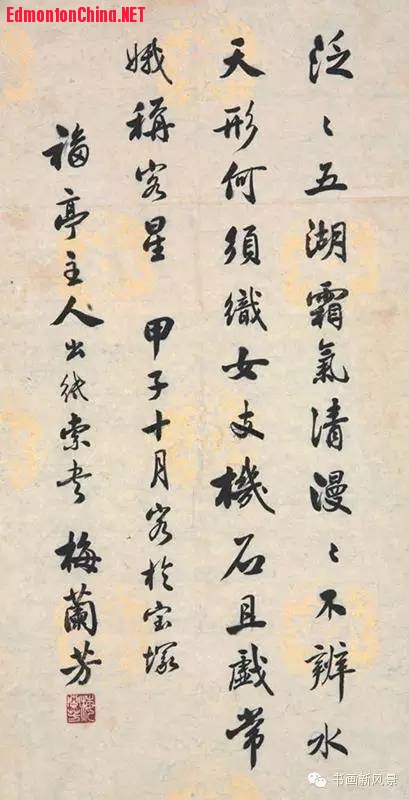 EdmontonChina.NET
泛〻五湖霜氣清漫〻不辨水
天形何須織女支機石且戲常
娥稱客星 甲子十月客於宝塚
福亭主人出紙索書 梅蘭芳
书画新风景